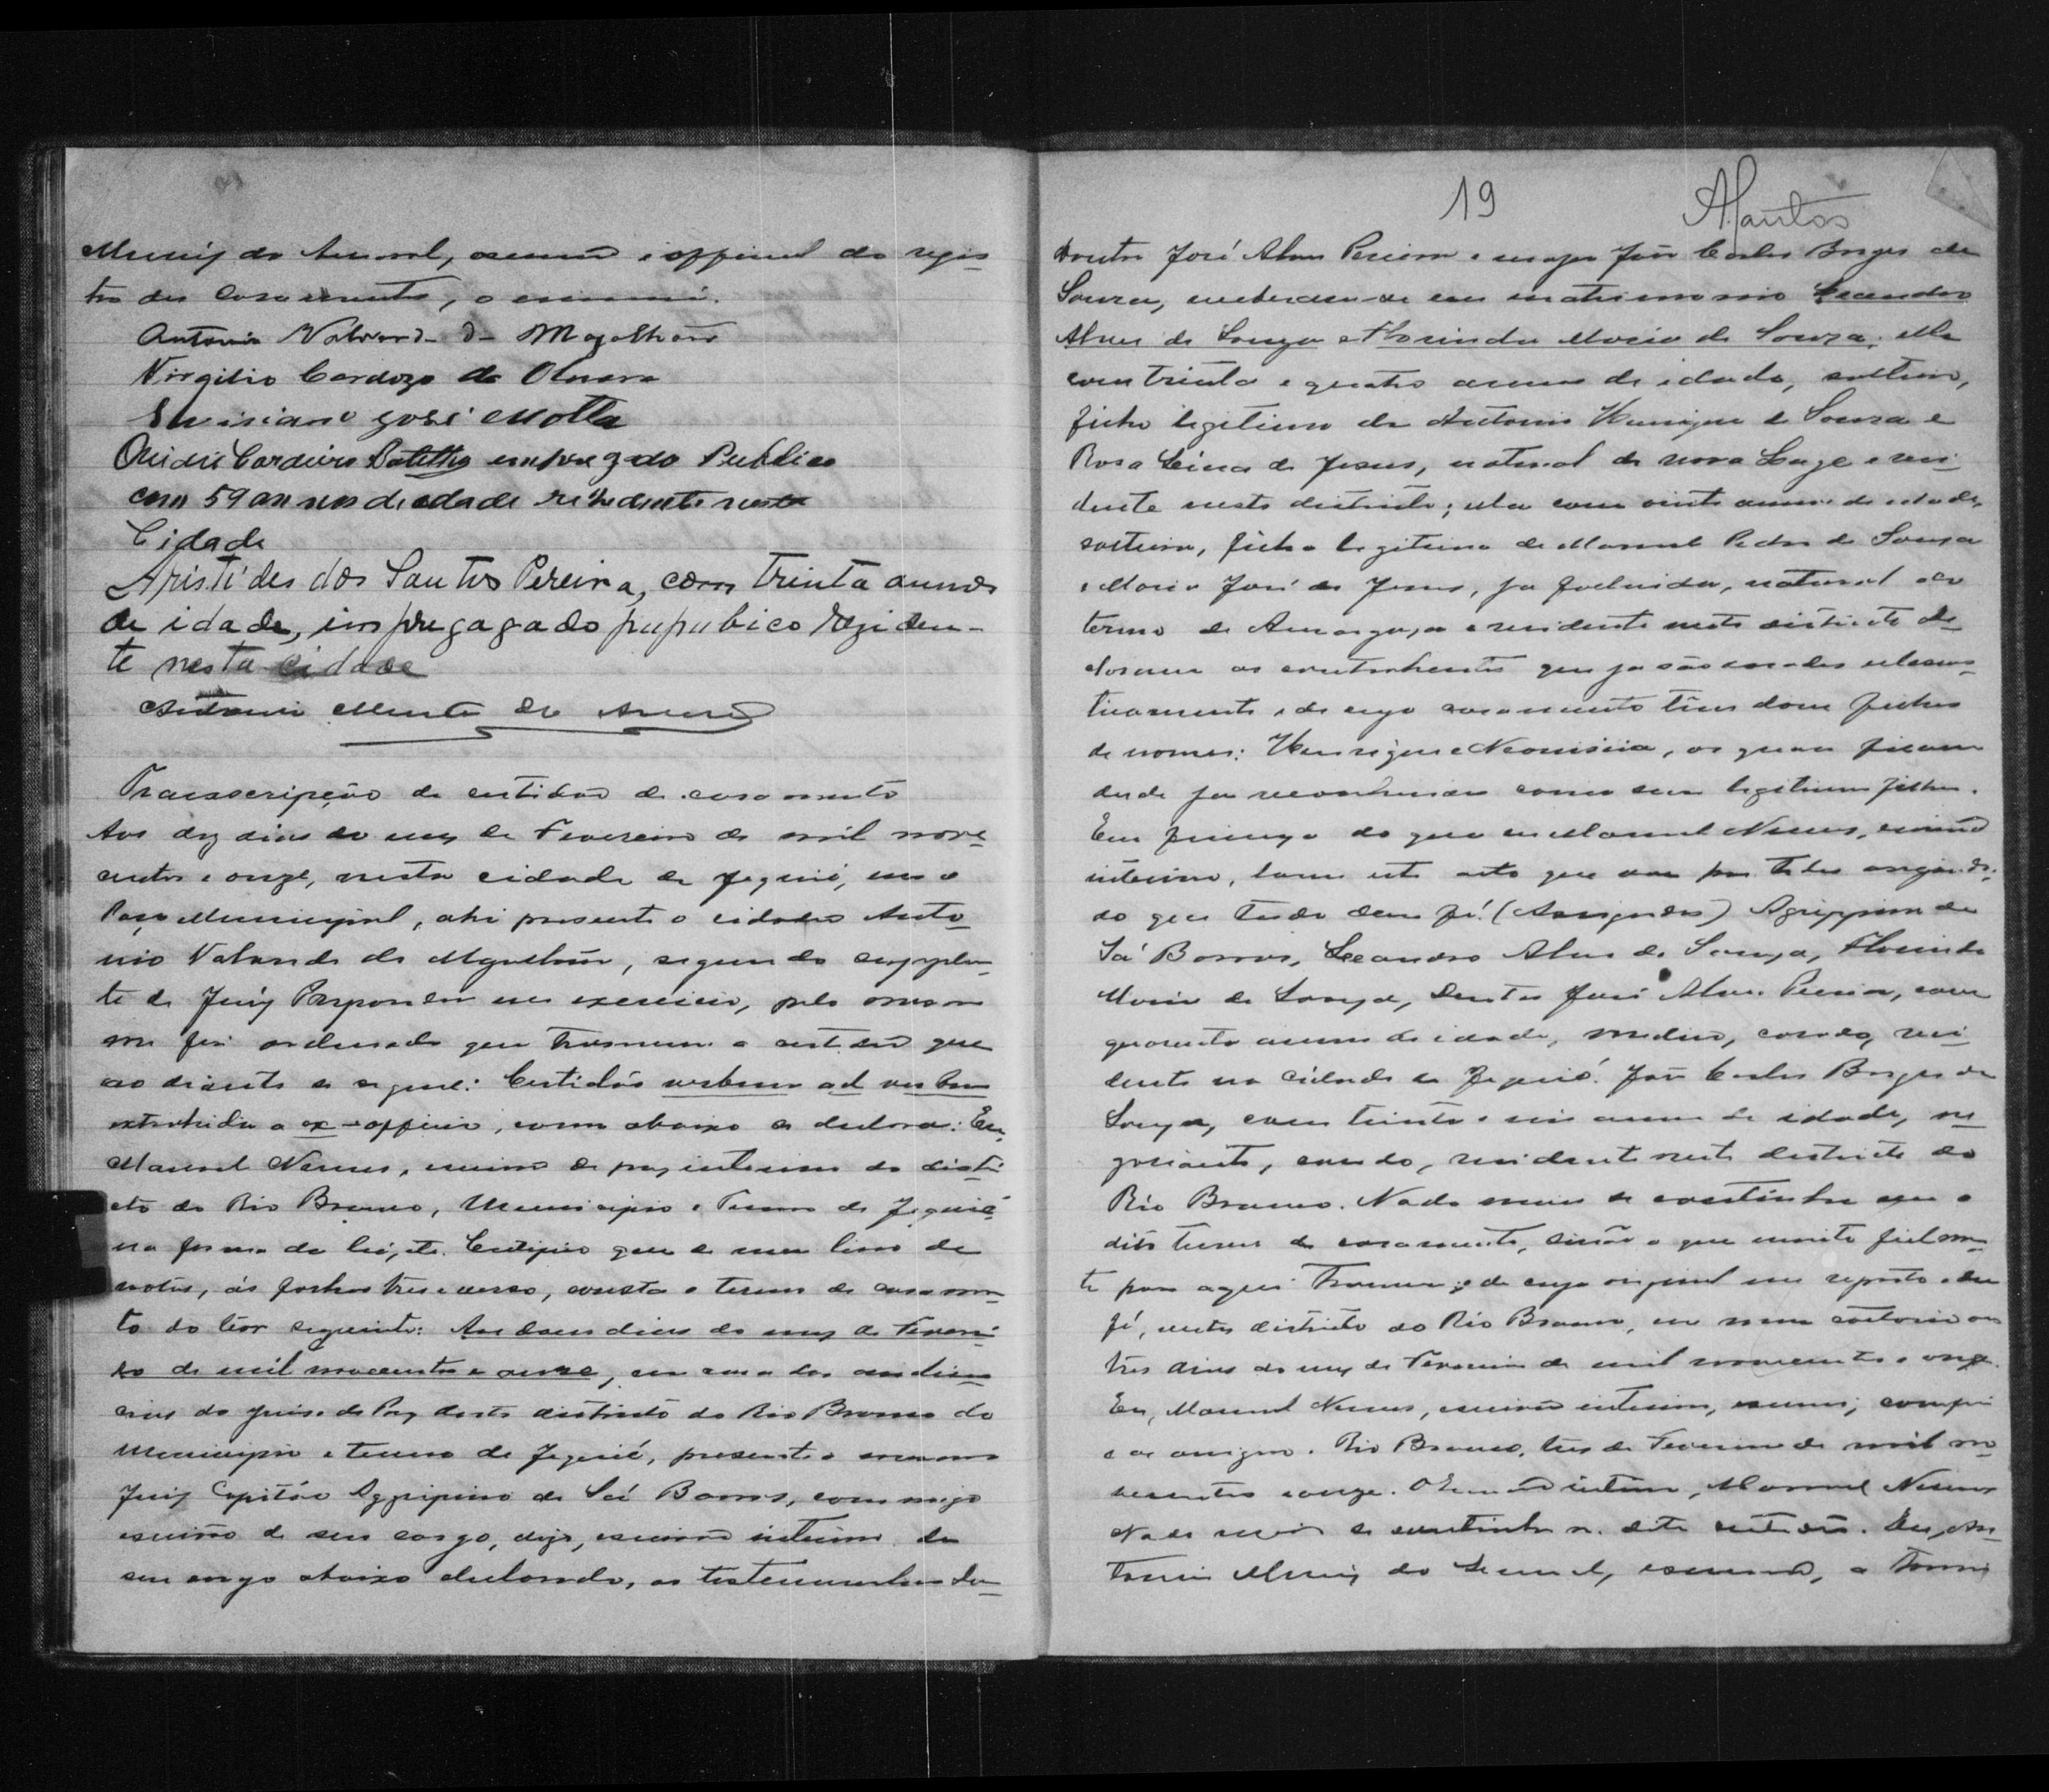 Muniz do Amaral, escrivão e official do regis-
tro dos casamentos, o escrevi.
Antonio Valverd. d- Magalhães
Virgilio Cardozo de
José Motta
Cordeiro Botelho empregado Publico
com 59 annos de edade rezidente nesta
Cidade
Aristides dos Santos Pereira, com trinta annos
de idade, impregagado pupubico rezíden-
te nesta cidade
Antonio Muniz do Amaral
Transcripção de certidão de casamento
Aos dez dias do mez de Fevereiro de mil nove-
centos e onze, nesta cidade de Jequié, em o
Paço Municipal, ahi presente o cidadão Anto-
nio Valverde de Magalhães, segundo supplen-
te de Juiz Preparador em exercicio, pelo mesmo
me foi ordenado que transcreva a certidão que
ao diante se segue: Certidão verbum ad verbum
extrahida a ex-officio, como abaixo se declara: Eu,
Manoel Neves, escrivão de paz interino do distri-
cto do Rio Branco, Municipio e Termo de Jequié
na forma da lei, etc. Certifico que em meu livro de
notas, ás folhas tres e verso, consta o termo de casamen-
to do teor seguinte: Aos dous dias do mez de Feverei-
ro de mil novecentos e onze, em casa das audien-
cias do Juiso de Paz deste districto do Rio Branco do
Municipio e termo de Jequié, presente o mesmo
Juiz Capitão Agripino de Sá Barros, commigo
escrivão de seu cargo, digo, escrivão interino de
seu cargo abaixo declarado, as testemunhas Dou-
19
ASantos
Doutor José Alves Pereira e major João Carlos Borges de
Souza, receberam-se em matrimonio Leandro
Alves de Souza e Florinda Maria de Souza; elle
com trinta e quatro annos de idade, solteiro,
filho legitimo de Antonio Henrique de Souza e
Rosa Lina de Jesus, natural de Nova Lage e resi-
dente neste districto; ella com vinte annos de edade,
solteira, filha legitima de Manoel Pedro de Souza
e Maria José de Jesus, ja fallecida, natural do
termo de Amargoza e residente neste districto de-
claram os contrahentes que ja são casados eclesias-
ticamente e de cujo casamento têm dous filhos
de nomes: Henrique e, os quaes ficam
desde ja reconhecidos como seus legitimos filhos.
Em firmeza do que eu Manoel Neves, escrivão
interino, lavrei este acto que vae por todos assignado.
do que tudo dou fé. (Assignados) Agrippino de
Sá Barros, Leandro Alves de Souza, Florinda
Maria de Souza, Doutor José Alves Pereira, com
quarenta annos de idade, medico, casado, resi-
dente na cidade de Jequié. João Carlos Borges de
Souza, com trinta e seis annos de idade, ne-
gociante, casado, residente neste districto do
Rio Branco. Nada mais se continha em o
dito termo de casamento, sinão o que muito fielmen-
te para aqui transcrevi, de cujo original me reporto e dou
fé, neste districto do Rio Branco, em meu cartorio aos
tres dias do mez de Fevereiro de mil novecentos e onze.
Eu, Manoel Neves, escrivão interino, escrevi, conferi
e assigno. Rio Branco, tres de Fevereiro de mil no-
vecentos e onze. O Escrivão interino, Manoel Neves
Nada mais se continha na dita certidão. Eu, An-
tonio Muniz do Amaral, escrivão, a